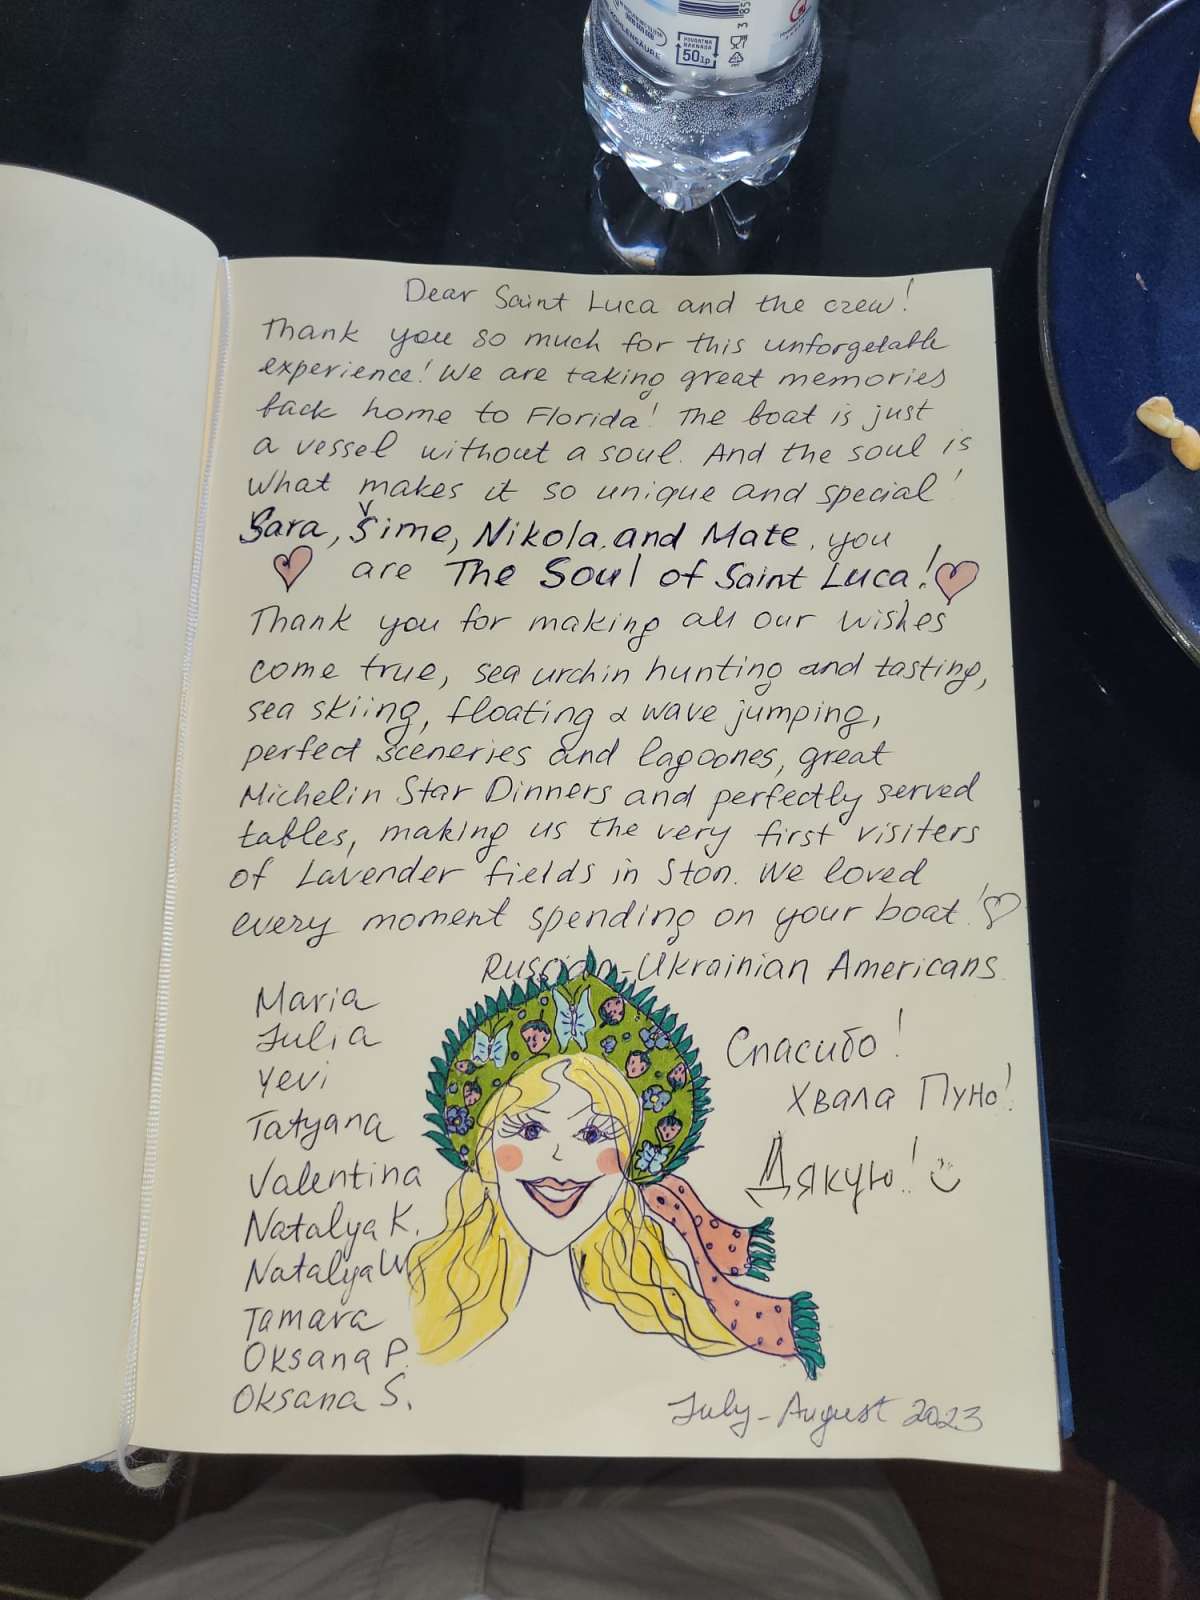 POVRATNA
NAKNADA
50 lp
Dear Saint Luca and the crew!
Thank you so much for this unforgetable
experience! We are taking great memories
back home to Florida! The boat is just
a vessel without a soul. And the soul is
what makes it so unique and special!
Sara, Šime, Nikola, and Mate, you
are The Soul of Saint Luca!
Thank you for making all our wishes
come true, sea urchin hunting and tasting,
sea skiing, floating & wave jumping,
perfect sceneries and lagoones, great
Michelin Star Dinners and perfectly served
tables, making us the very first visiters
of Lavender fields in Ston. We loved
every moment spending on your boat!
Russian-Ukrainian Americans
Maria
Julia
Yevi
Tatyana
Valentina
Natalya K.
Natalya
Tamara
Oksana P.
Oksana S.
Спасибо!
Хвала Пуно!
Дякую!
July-August 2023